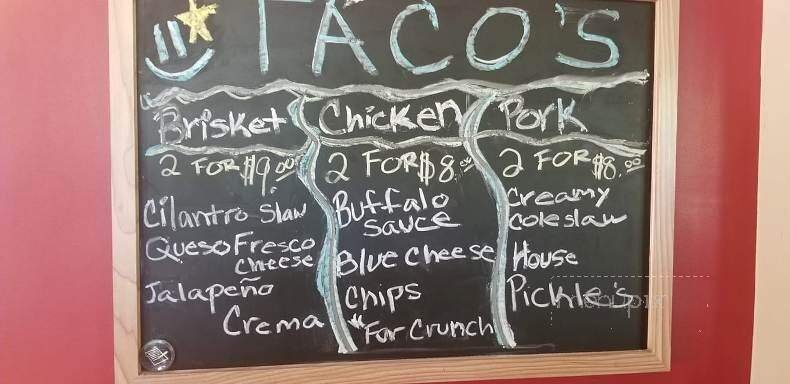 TACO'S
Brisket
2 FOR $9.00
Cilantro Slaw
Queso Fresco
Cheese
Jalapeño
Crema
Chicken
2 FOR $8.00
Buffalo
Sauce
Blue Cheese
Chips
*For Crunch
Pork
2 FOR $8.00
Creamy
Coleslaw
House
Pickle's